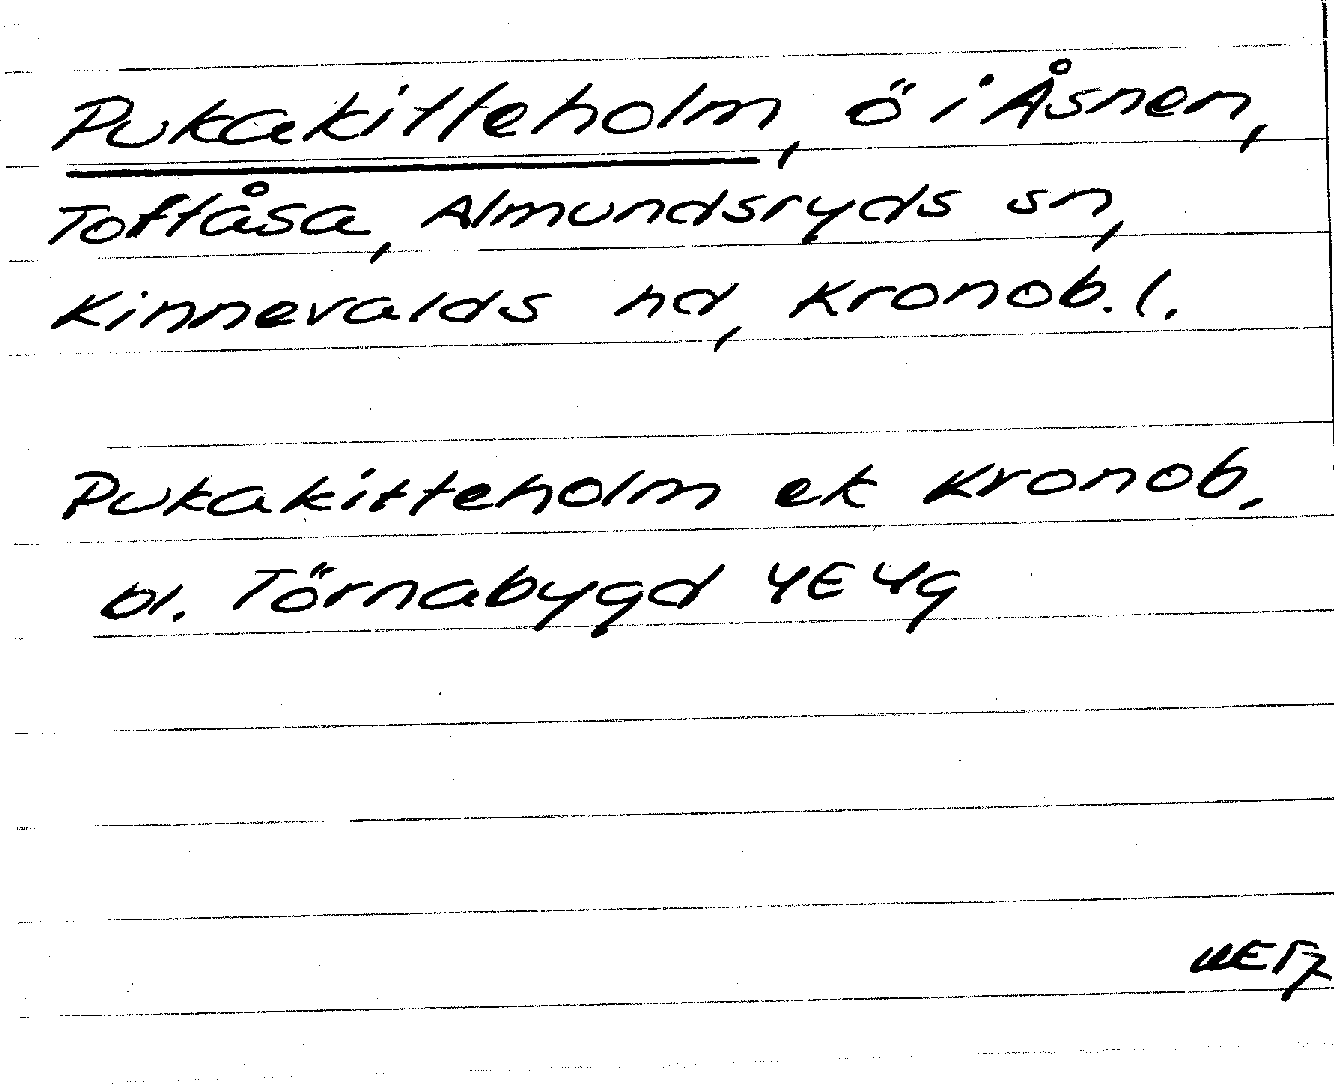 Pukakitteholm, ö i Åsnen,
Toftåsa, Almundsryds sn,
Kinnevalds hd, Kronob. l.
Pukakitteholm ek Kronob.
bl. Törnabygd 4E4g